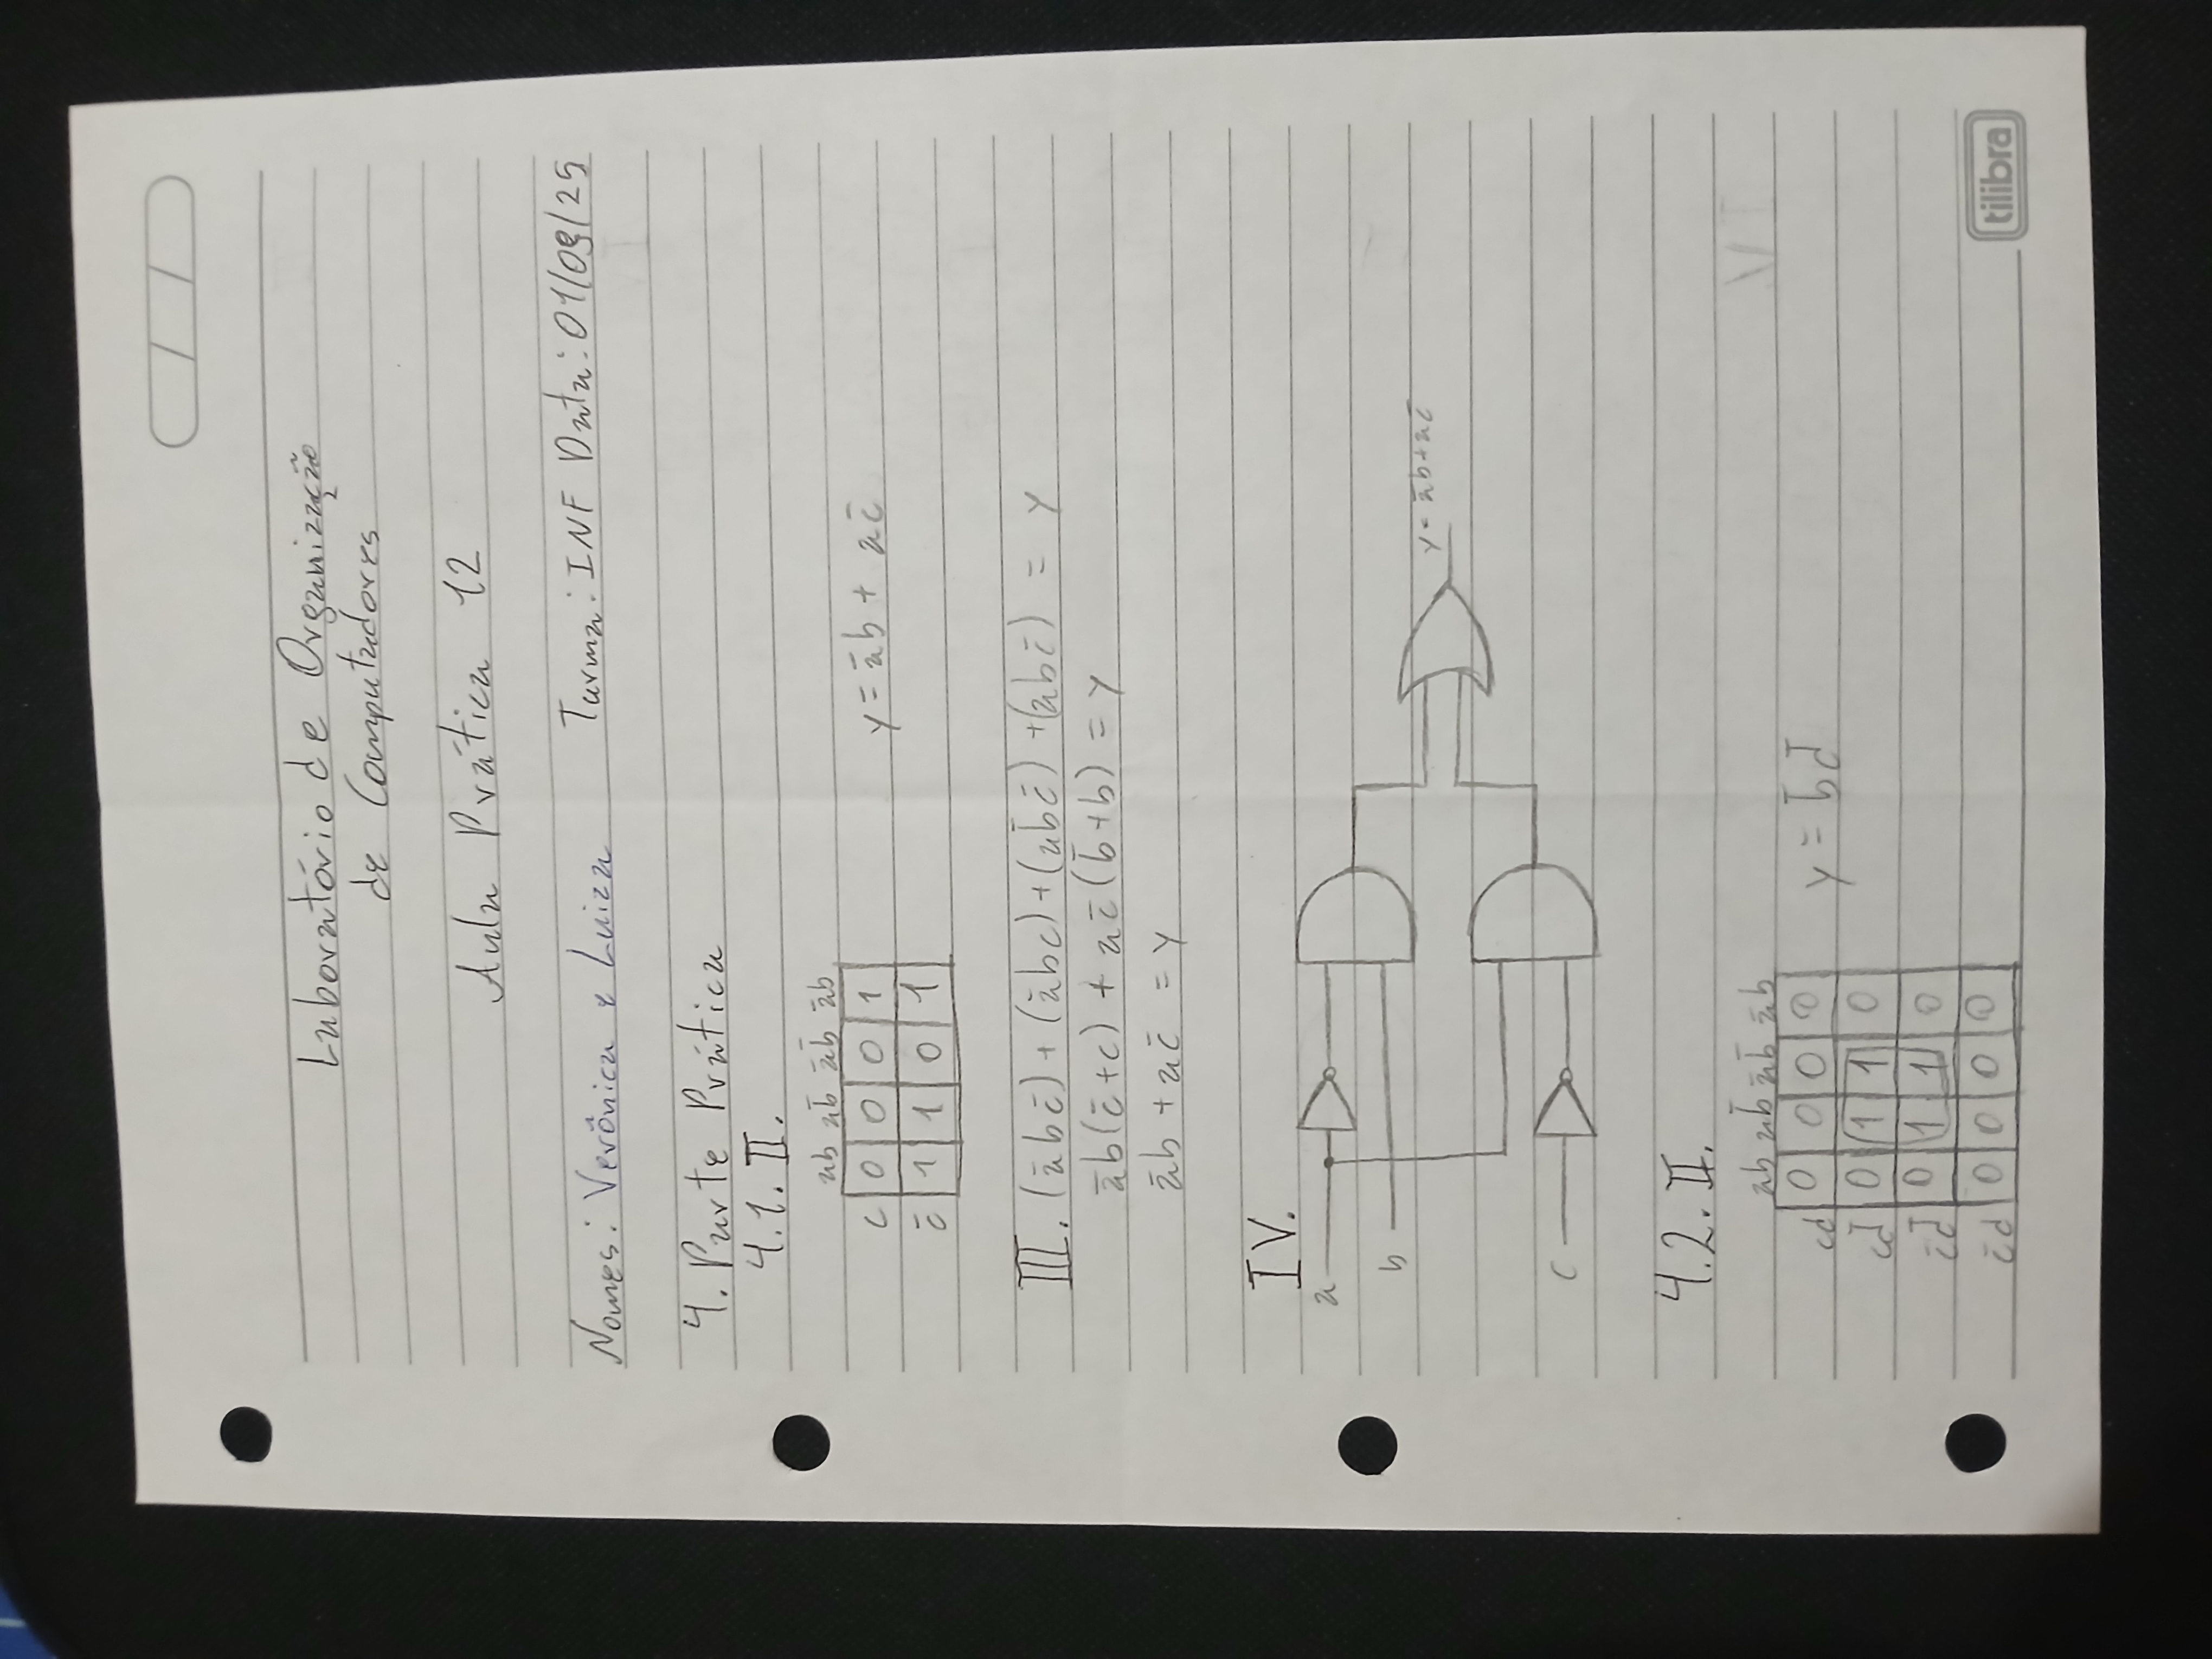 Laboratório de Organização
de Computadores
Aula Prática 12
Nomes: Verônica e Luiza Turma: INF Data: 01/09/25
4. Parte Prática
4.1. II.
ab ab̄ āb̄ āb
c 0 0 0 1 y = āb + ac̄
c̄ 1 1 0 1
III. (ābc̄) + (ābc) + (ab̄c̄) + (abc̄) = y
āb(c̄+c) + ac̄(b̄+b) = y
āb + ac̄ = y
IV.
a
b
y = āb+ac̄
c
4.2. II.
ab ab̄ āb̄ āb
cd 0 0 0 0 y = b̄d̄
cd̄ 0 1 1 0
c̄d̄ 0 1 1 0
c̄d 0 0 0 0
tilibra